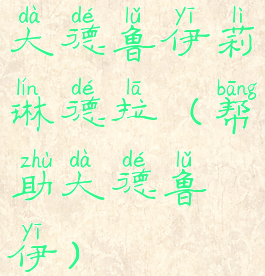 dà dé lǔ yī lì
大德鲁伊莉
lín dé lā bāng
琳德拉（帮
zhù dà dé lǔ
助大德鲁
yī
伊）